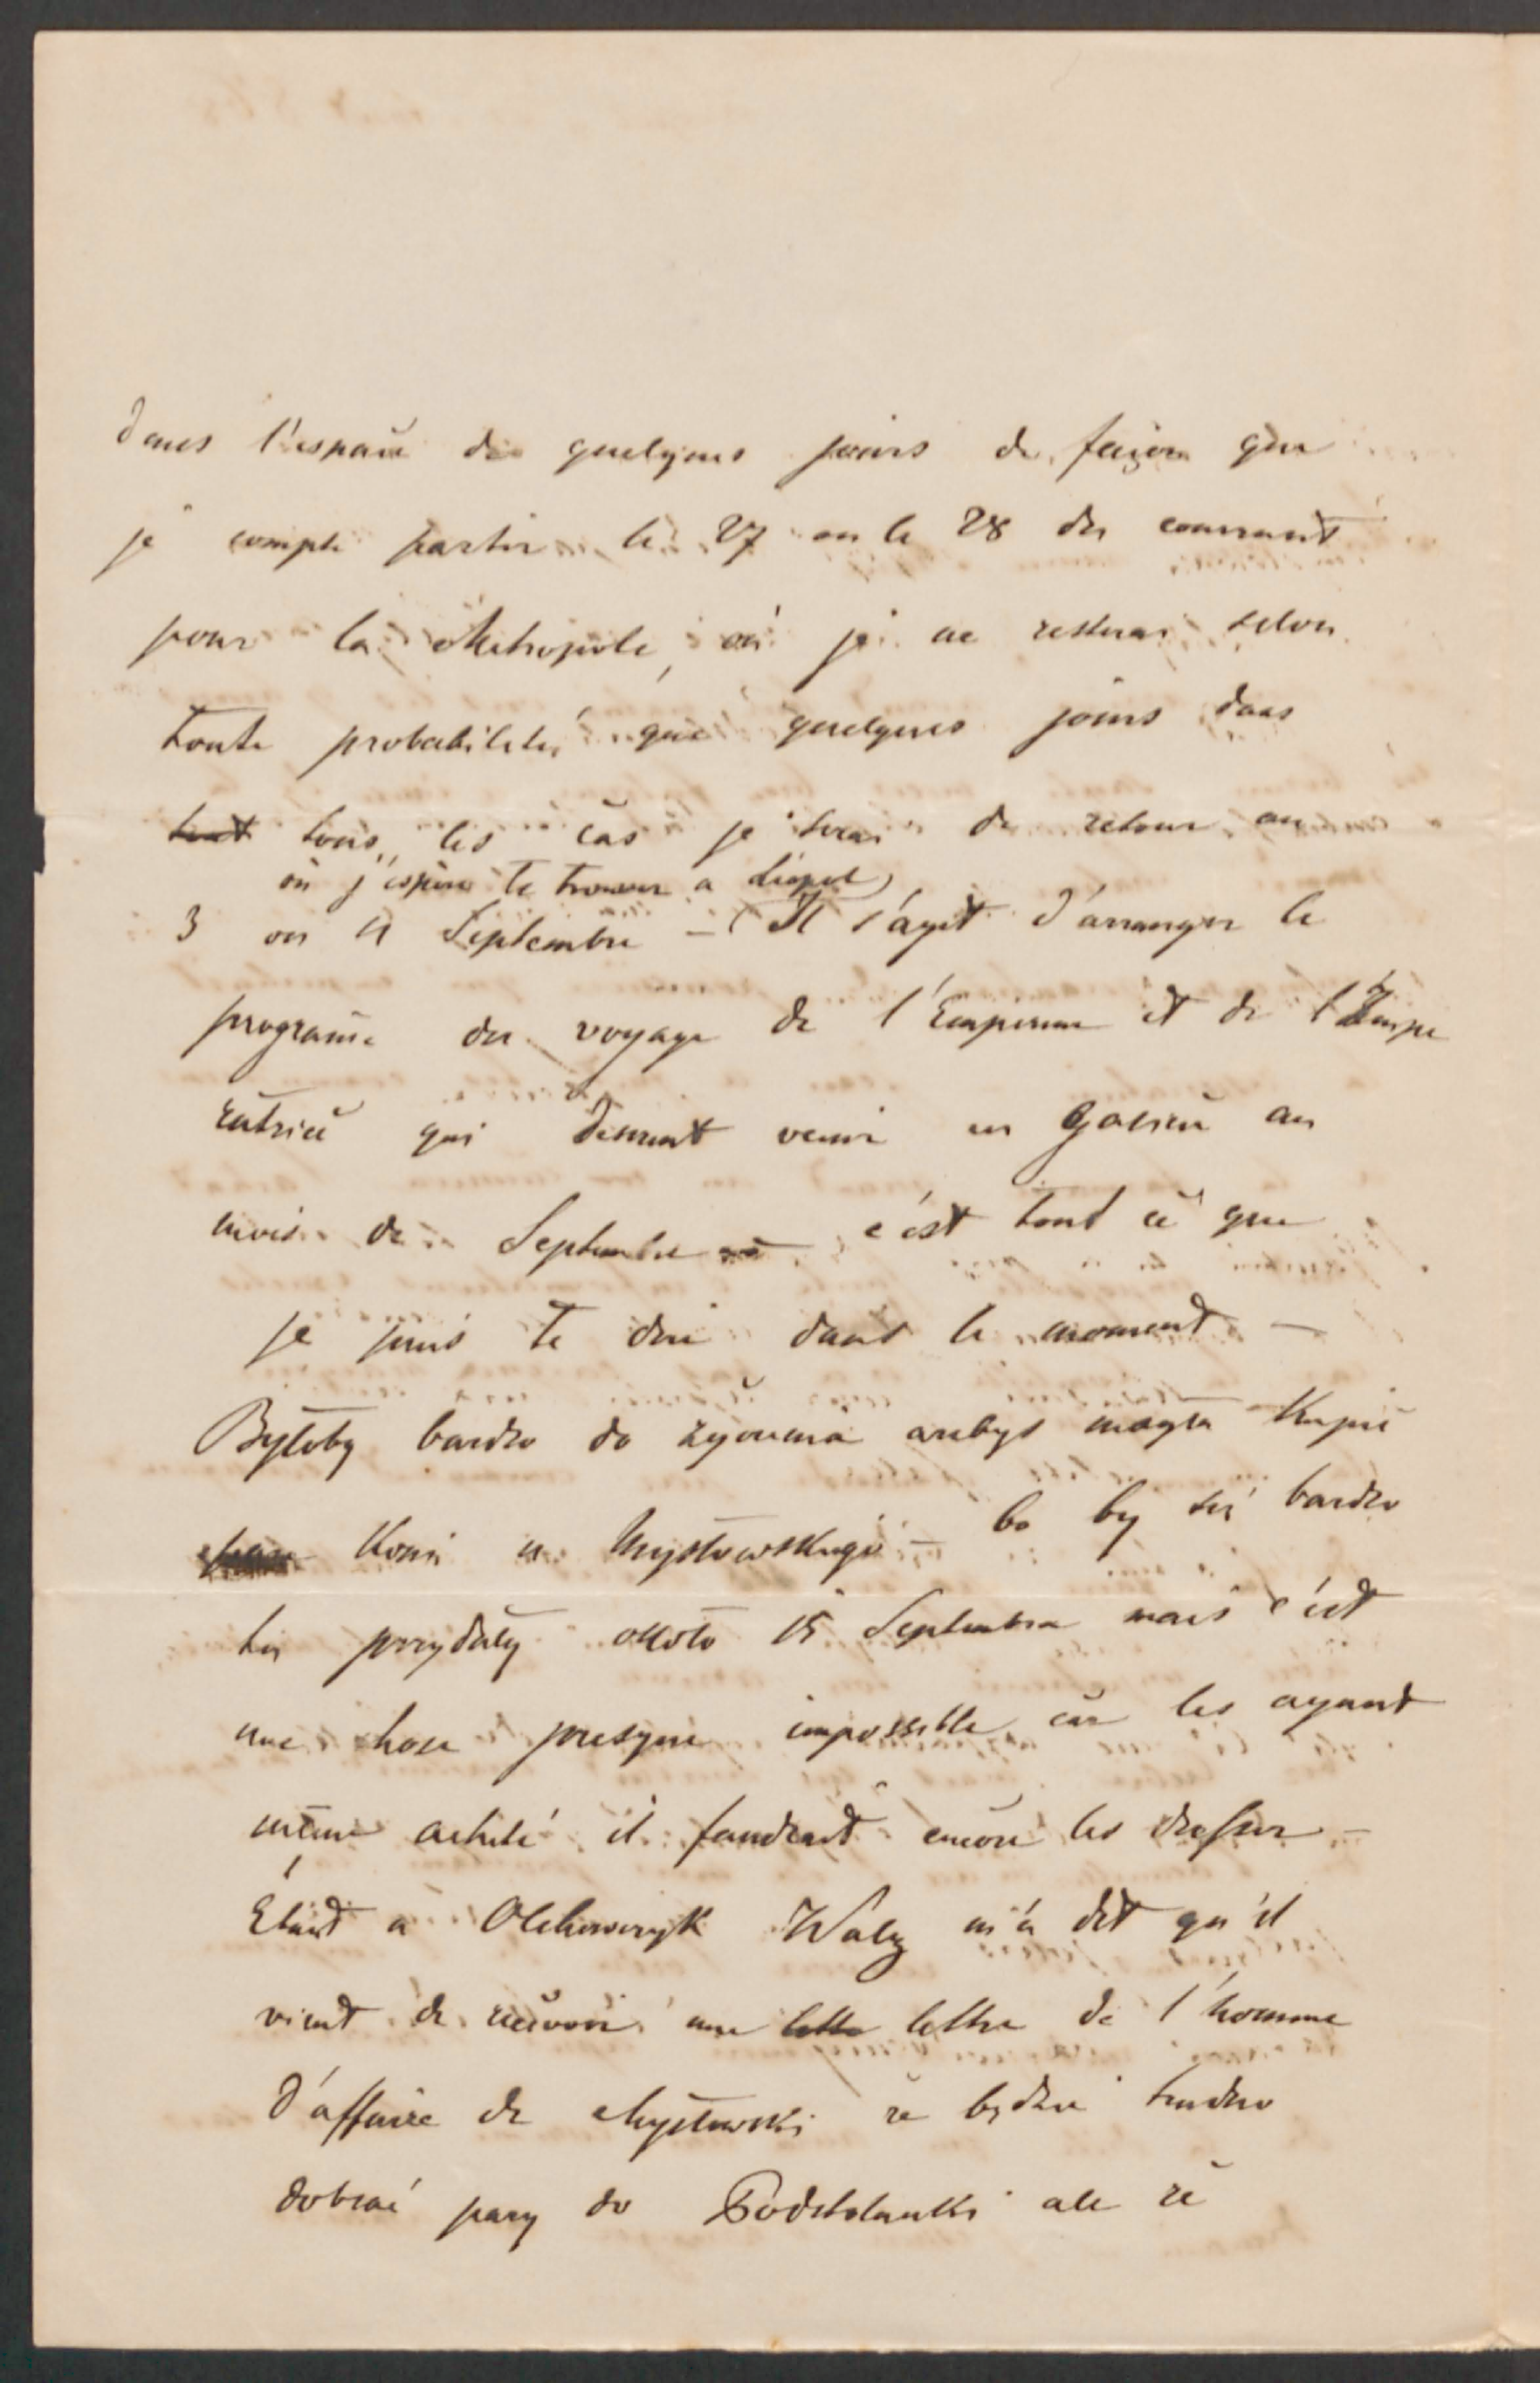 dans l'espace de quelques jours de façon que
je compte partir le 27 ou le 28 du courrant
pour la Metropole, où je ne resterai selon
toute probabilité que quelques jours dans
tout tous les cas je serai de retour au
où j'espère te trouver a Léopol
3 ou 4 Septembre – Il s'agit d'arranger le
programe du voyage de l'Empereur et de l'Impe
ratrice qui doivent venir en Galicie au
mois de Septembre c'est tout ce que
je puis te dire dans le moment –
Byłoby bardzo do życzenia ażebyś mogła Kupić
Koni u Mysłowskiego – bo by się bardzo
się przydały około 15 Septembra mais c'est
une chose presque impossible car les ayant
même acheté il faudrait encore les dresser –
Étant a Olchowczyk Waly m'a dit qu'il
vient de recevoir une lette lettre de l'homme
d'affaire de Mysłowski że będzie trudno
dobrać pary do Podstolanki ale że